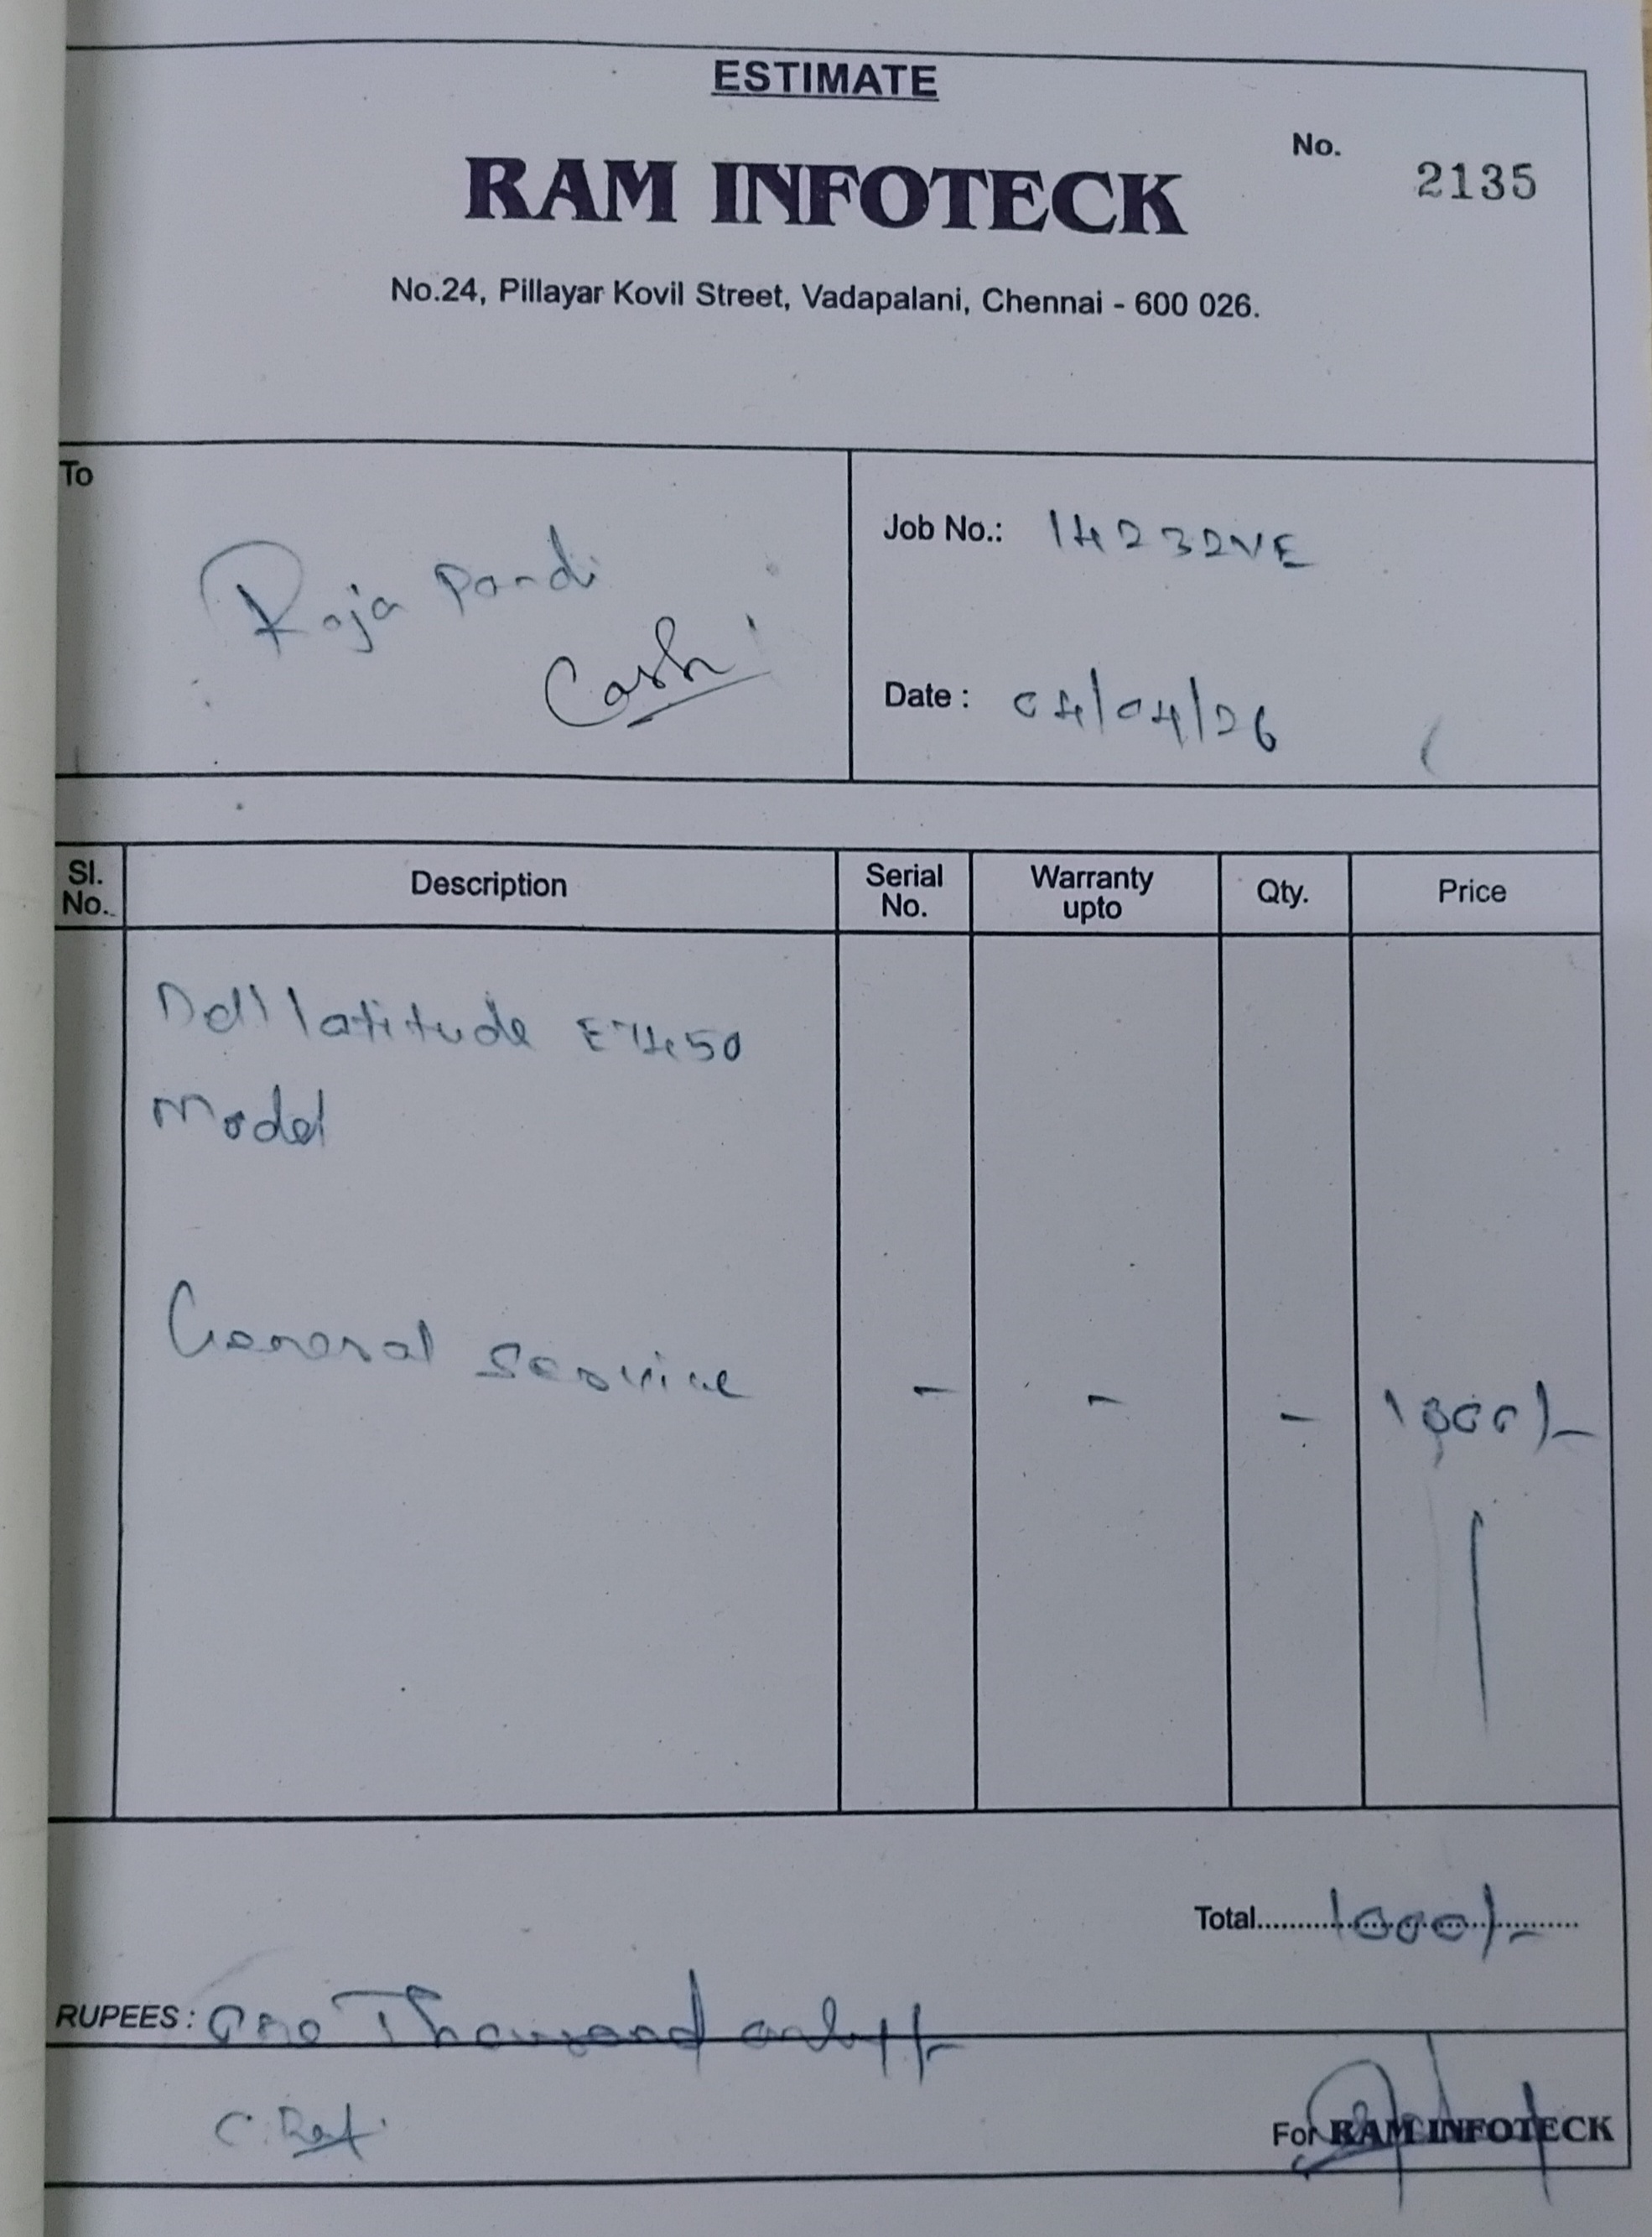 ESTIMATE
No. 2135
RAM INFOTECK
No.24, Pillayar Kovil Street, Vadapalani, Chennai - 600 026.
To
Raja pandi
Cash
Job No.: 14232VE
Date : 04/04/26
Sl. No. Description Serial No. Warranty upto Qty. Price
Dell latitude E7450
Model
General service - - - 1000/-
Total 1000/-
RUPEES : One Thousand only/-
For RAM INFOTECK